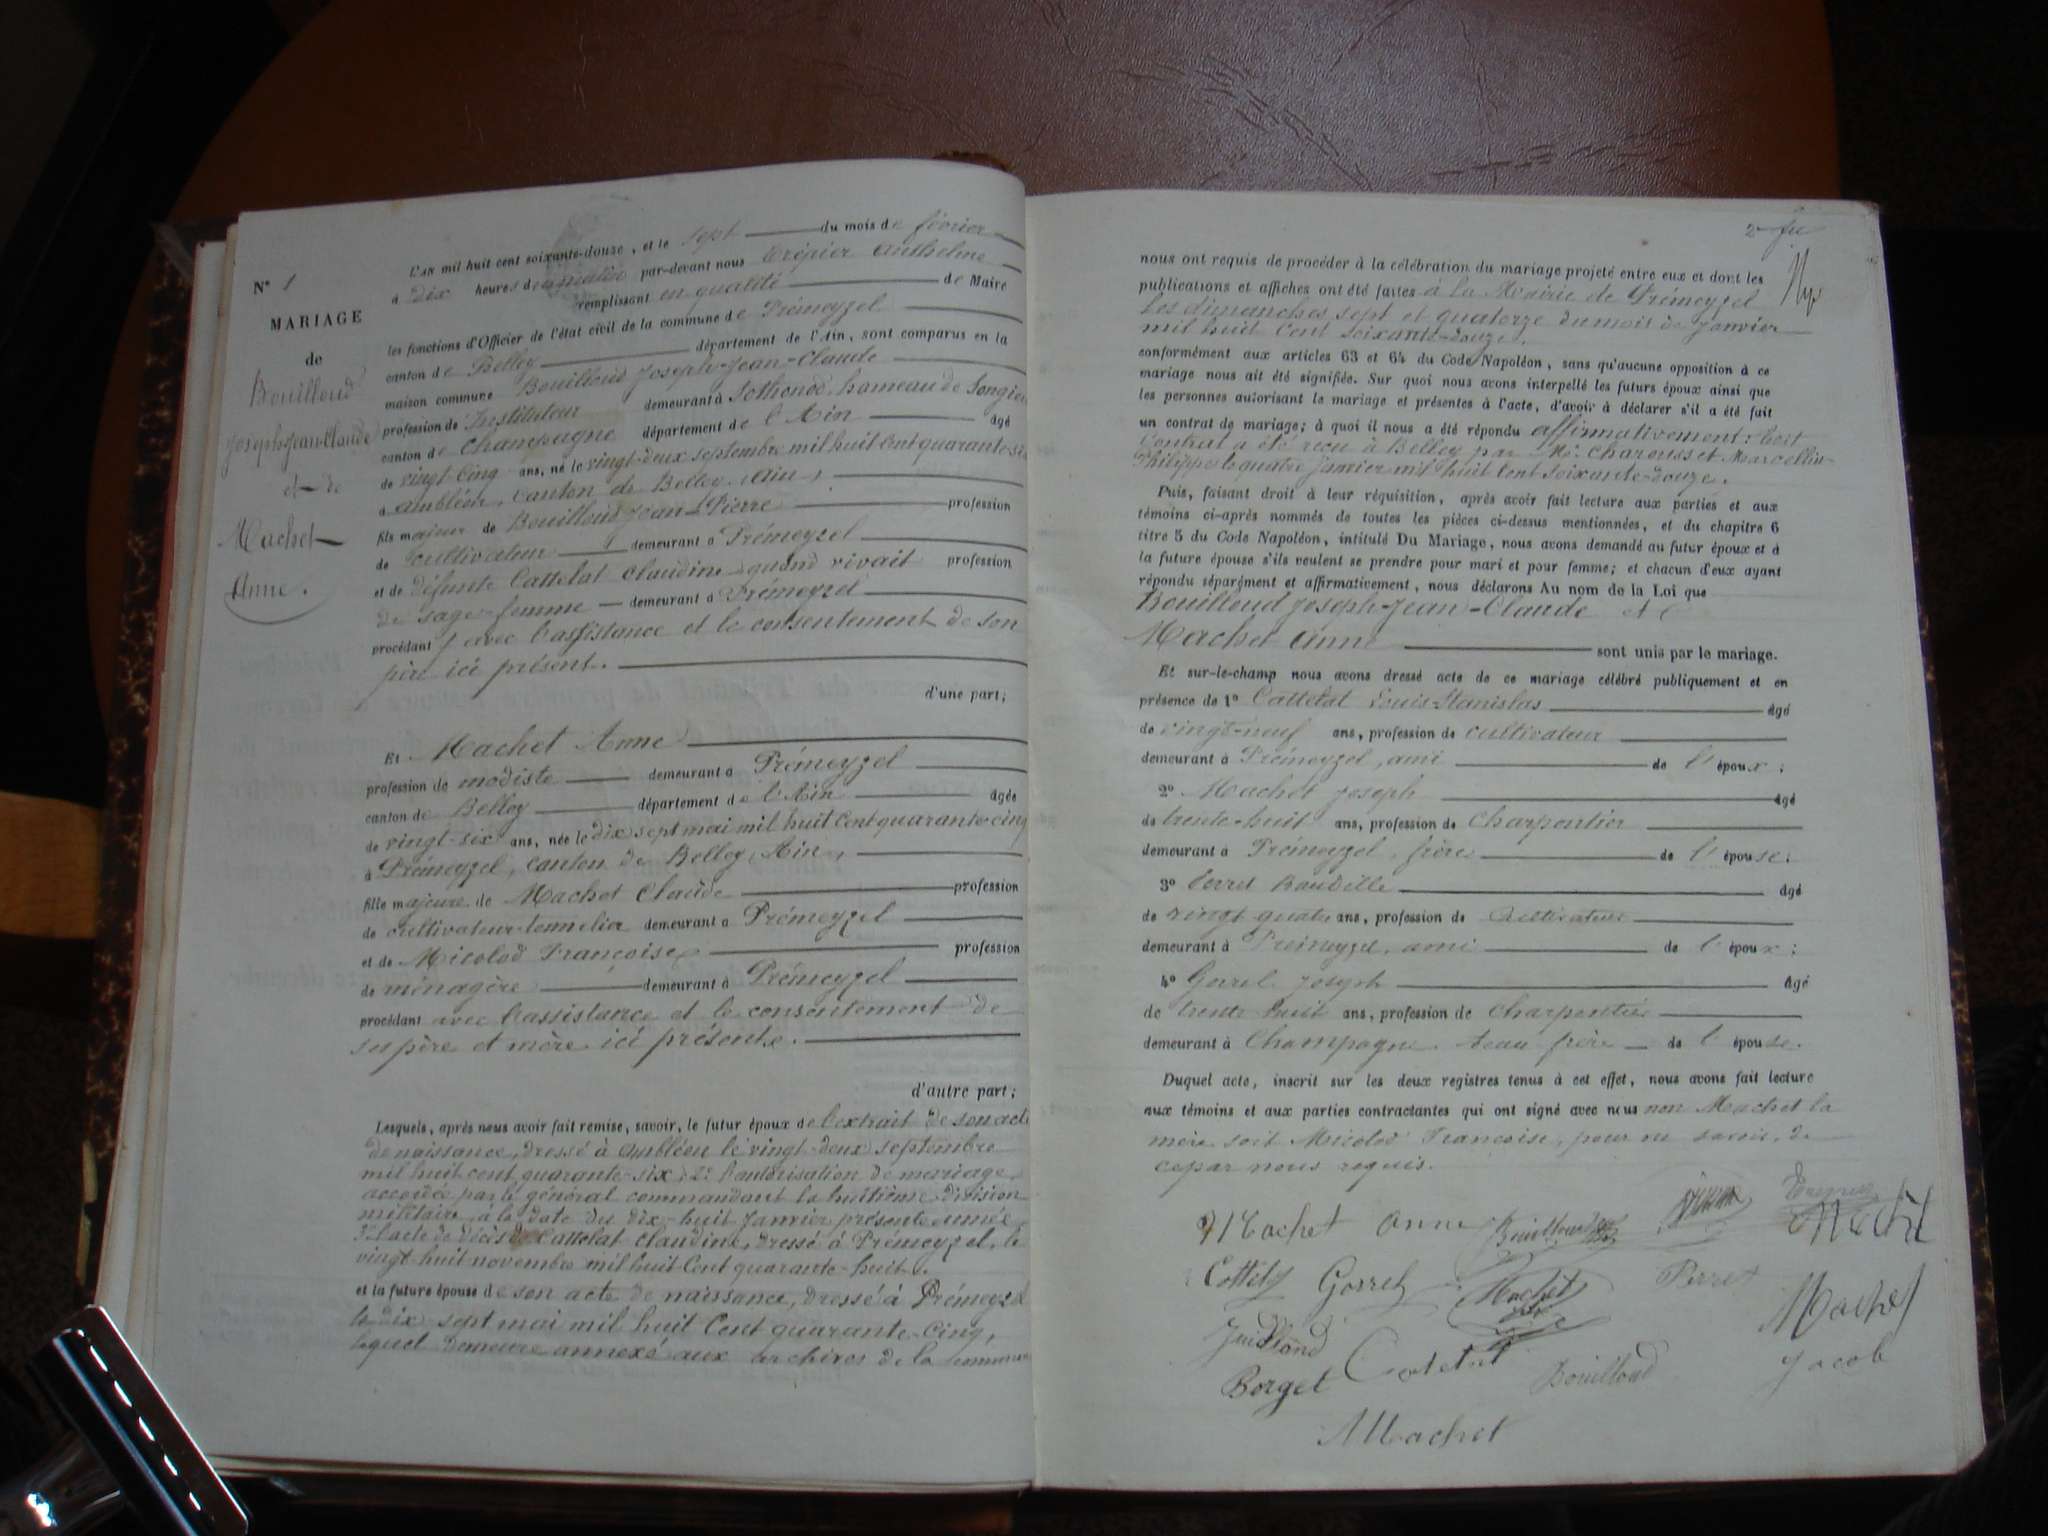 N° 1
MARIAGE
de
Bouilloud
Joseph-Jean-Claude
et de
Machet
Anne.
L'AN mil huit cent soixante-douze, et le sept du mois de février
à dix heures du matin par-devant nous Trépier Anthelme
remplissant en qualité de Maire
les fonctions d'Officier de l'état civil de la commune de Prémeyzel
canton de Belley département de l'Ain, sont comparus en la
maison commune Bouilloud Joseph-Jean-Claude
profession de Instituteur demeurant à Sothonod, hameau de Songieu
canton de Champagne département de l'Ain âgé
de vingt-cinq ans, né le vingt-deux septembre mil huit cent quarante-six
à Ambléon, canton de Belley (Ain)
fils majeur de Bouilloud Jean-Pierre profession
de cultivateur demeurant à Prémeyzel
et de défunte Cattelat Claudine quand vivait profession
de sage-femme demeurant à Prémeyzel
procédant avec l'assistance et le consentement de son
père ici présent.
d'une part;
Et Machet Anne
profession de modiste demeurant à Prémeyzel
canton de Belley département de l'Ain âgée
de vingt-six ans, née le dix sept mai mil huit cent quarante-cinq
à Prémeyzel, canton de Belley, Ain,
fille majeure de Machet Claude profession
de cultivateur-tonnelier demeurant à Prémeyzel
et de Micolod Françoise profession
de ménagère demeurant à Prémeyzel
procédant avec l'assistance et le consentement de
ses père et mère ici présents.
d'autre part;
Lesquels, après nous avoir fait remise, savoir, le futur époux de l'extrait de son acte
de naissance, dressé à Ambléon le vingt-deux septembre
mil huit cent quarante-six, 2° l'autorisation de mariage
accordée par le général commandant la huitième division
militaire, à la date du dix-huit janvier présente année,
3° l'acte de décès de Cattelat Claudine, dressé à Prémeyzel, le
vingt-huit novembre mil huit cent quarante-huit.
et la future épouse de son acte de naissance, dressé à Prémeyzel
le dix sept mai mil huit cent quarante-cinq,
lequel demeure annexé aux archives de la commune
nous ont requis de procéder à la célébration du mariage projeté entre eux et dont les
publications et affiches ont été faites à la Mairie de Prémeyzel
les dimanches sept et quatorze du mois de janvier
mil huit cent soixante-douze.
conformément aux articles 63 et 64 du Code Napoléon, sans qu'aucune opposition à ce
mariage nous ait été signifiée. Sur quoi nous avons interpellé les futurs époux ainsi que
les personnes autorisant le mariage et présentes à l'acte, d'avoir à déclarer s'il a été fait
un contrat de mariage; à quoi il nous a été répondu affirmativement
contrat a été reçu à Belley par Me Marcellin
Philippe le quatre janvier mil huit cent soixante-douze.
Puis, faisant droit à leur réquisition, après avoir fait lecture aux parties et aux
témoins ci-après nommés de toutes les pièces ci-dessus mentionnées, et du chapitre 6
titre 5 du Code Napoléon, intitulé Du Mariage, nous avons demandé au futur époux et à
la future épouse s'ils veulent se prendre pour mari et pour femme; et chacun d'eux ayant
répondu séparément et affirmativement, nous déclarons Au nom de la Loi que
Bouilloud Joseph-Jean-Claude et
Machet Anne sont unis par le mariage.
Et sur-le-champ nous avons dressé acte de ce mariage célébré publiquement et en
présence de 1° Cattelat Louis-Stanislas âgé
de vingt-neuf ans, profession de cultivateur
demeurant à Prémeyzel, ami de l'époux;
2° Machet Joseph âgé
de trente-huit ans, profession de charpentier
demeurant à Prémeyzel, frère de l'épouse;
3° Perret Baudille âgé
de vingt-quatre ans, profession de cultivateur
demeurant à Prémeyzel, ami de l'époux;
4° Gorrel Joseph âgé
de trente huit ans, profession de charpentier
demeurant à Champagne, beau frère de l'épouse.
Duquel acte, inscrit sur les deux registres tenus à cet effet, nous avons fait lecture
aux témoins et aux parties contractantes qui ont signé avec nous non Machet la
mère soit Micolod Françoise, pour ne savoir, de
ce par nous requis.
Machet Anne Bouilloud
Gorrel Machet Perret
Machet
Borget Catelat Bouilloud Jacob
Machet